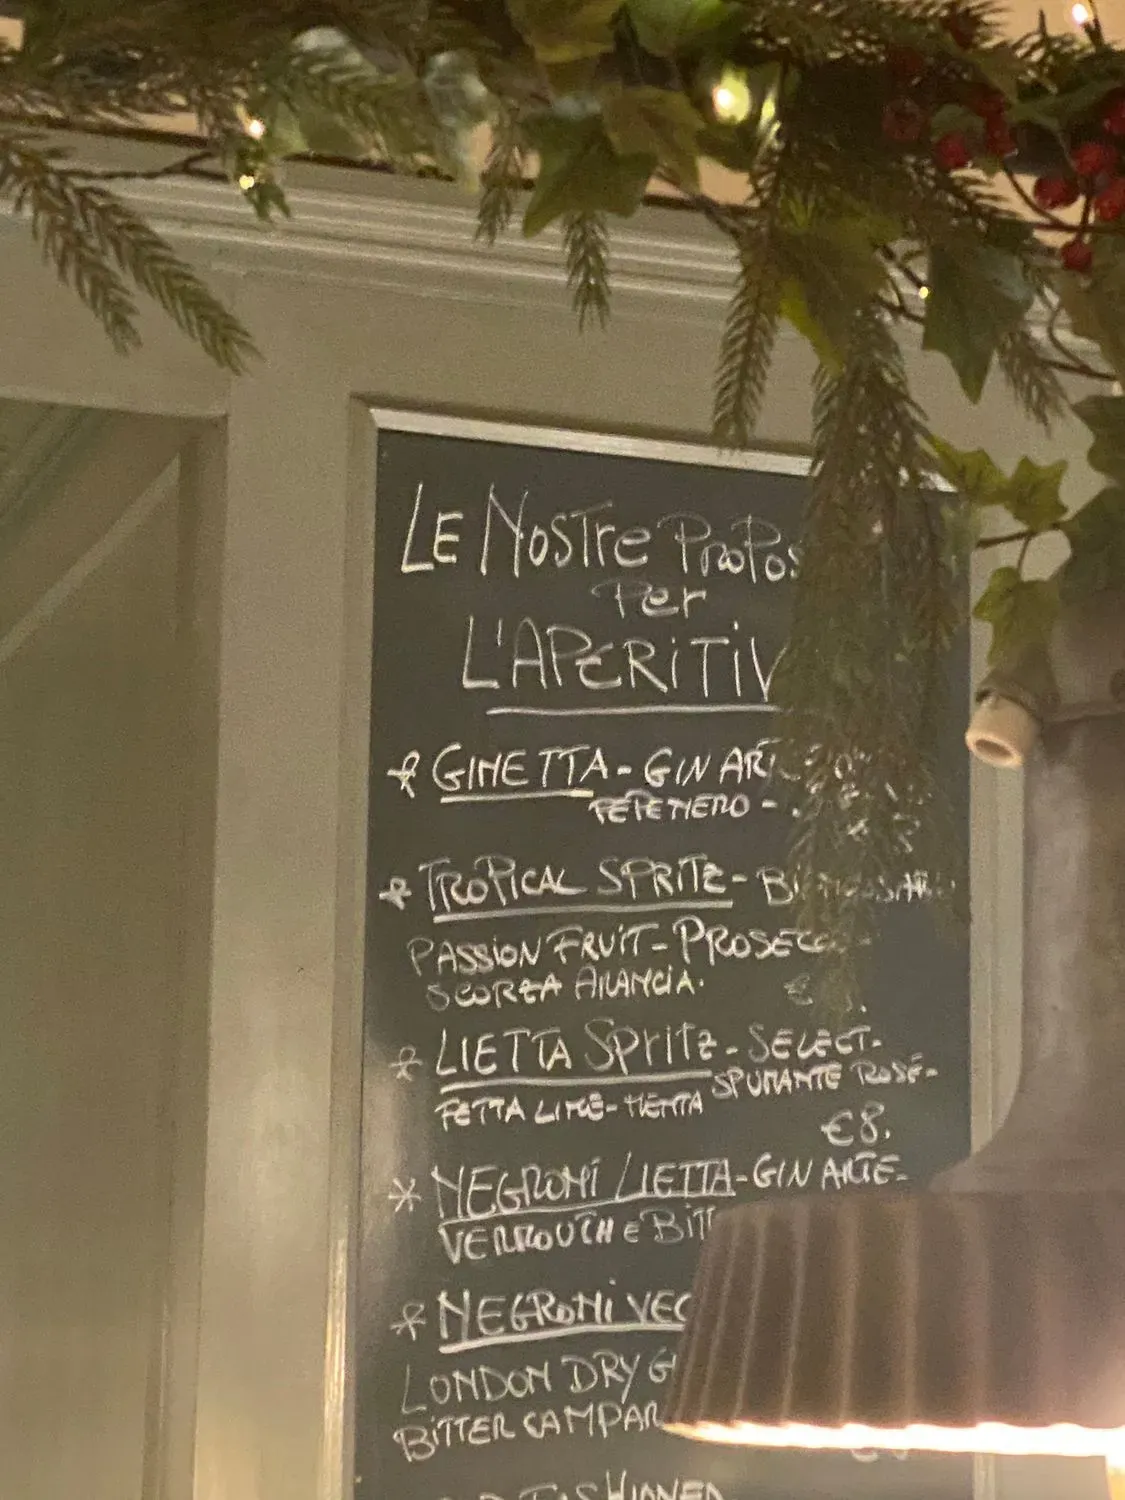 LE NOSTRE PROPOS
Per
L'APERITIV
GINETTA - GIN ART
PEPE NERO -
TROPICAL SPRITZ -
PASSION FRUIT - PROSECCO -
SCORZA ARANCIA.
LIETTA SPRITZ - SELECT -
SPUMANTE ROSÉ -
FETTA LIME - MENTA
€8.
NEGRONI LIETTA - GIN ARTE -
VERMOUTH e BITT
NEGRONI VEC
LONDON DRY G
BITTER CAMPAR
FASHIONED